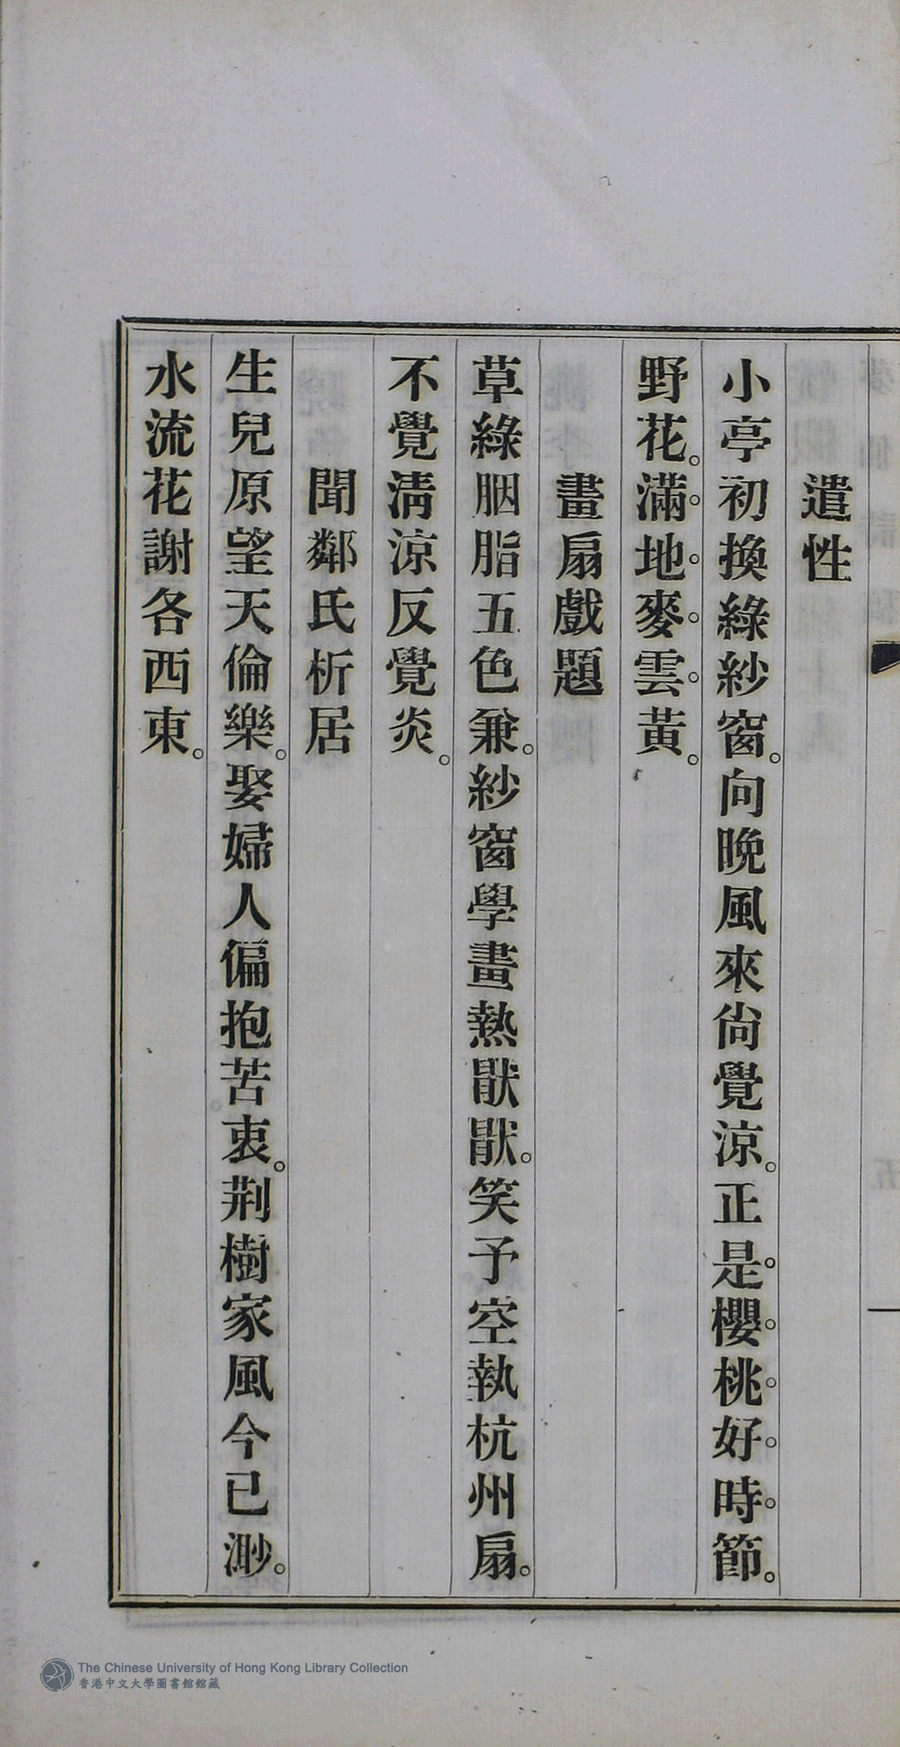 遣性
小亭初換綠紗窗。向晚風來尙覺涼。正是櫻桃好時節。
野花滿地麥雲黃。
畫扇戲題
草綠胭脂五色兼。紗窗學畫熱猒猒。笑予空執杭州扇。
不覺淸涼反覺炎。
聞鄰氏析居
生兒原望天倫樂。娶婦人偏抱苦衷。荆樹家風今已渺。
水流花謝各西東。
The Chinese University of Hong Kong Library Collection
香港中文大學圖書館館藏